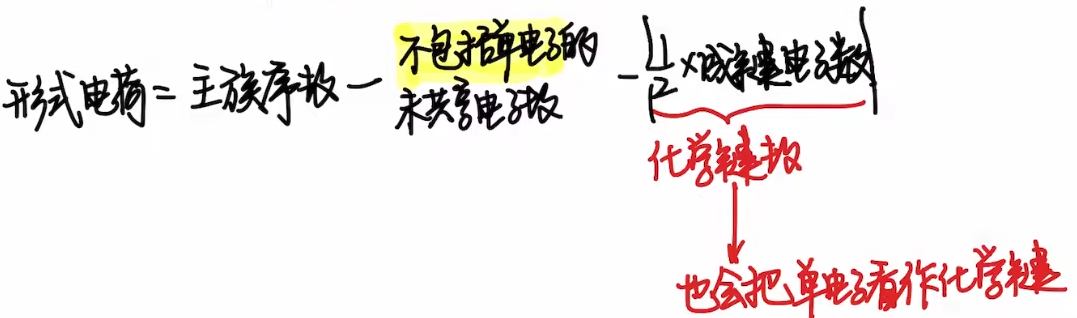 形式电荷=主族序数-不包括单电子的未共享电子数-|1/2×成键电子数|
化学键数
也会把单电子看作化学键